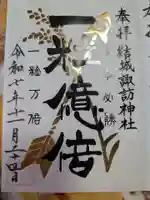 奉拝 結城諏訪神社
必勝
一粒億倍
一粒万倍
令和七年十一月二十四日